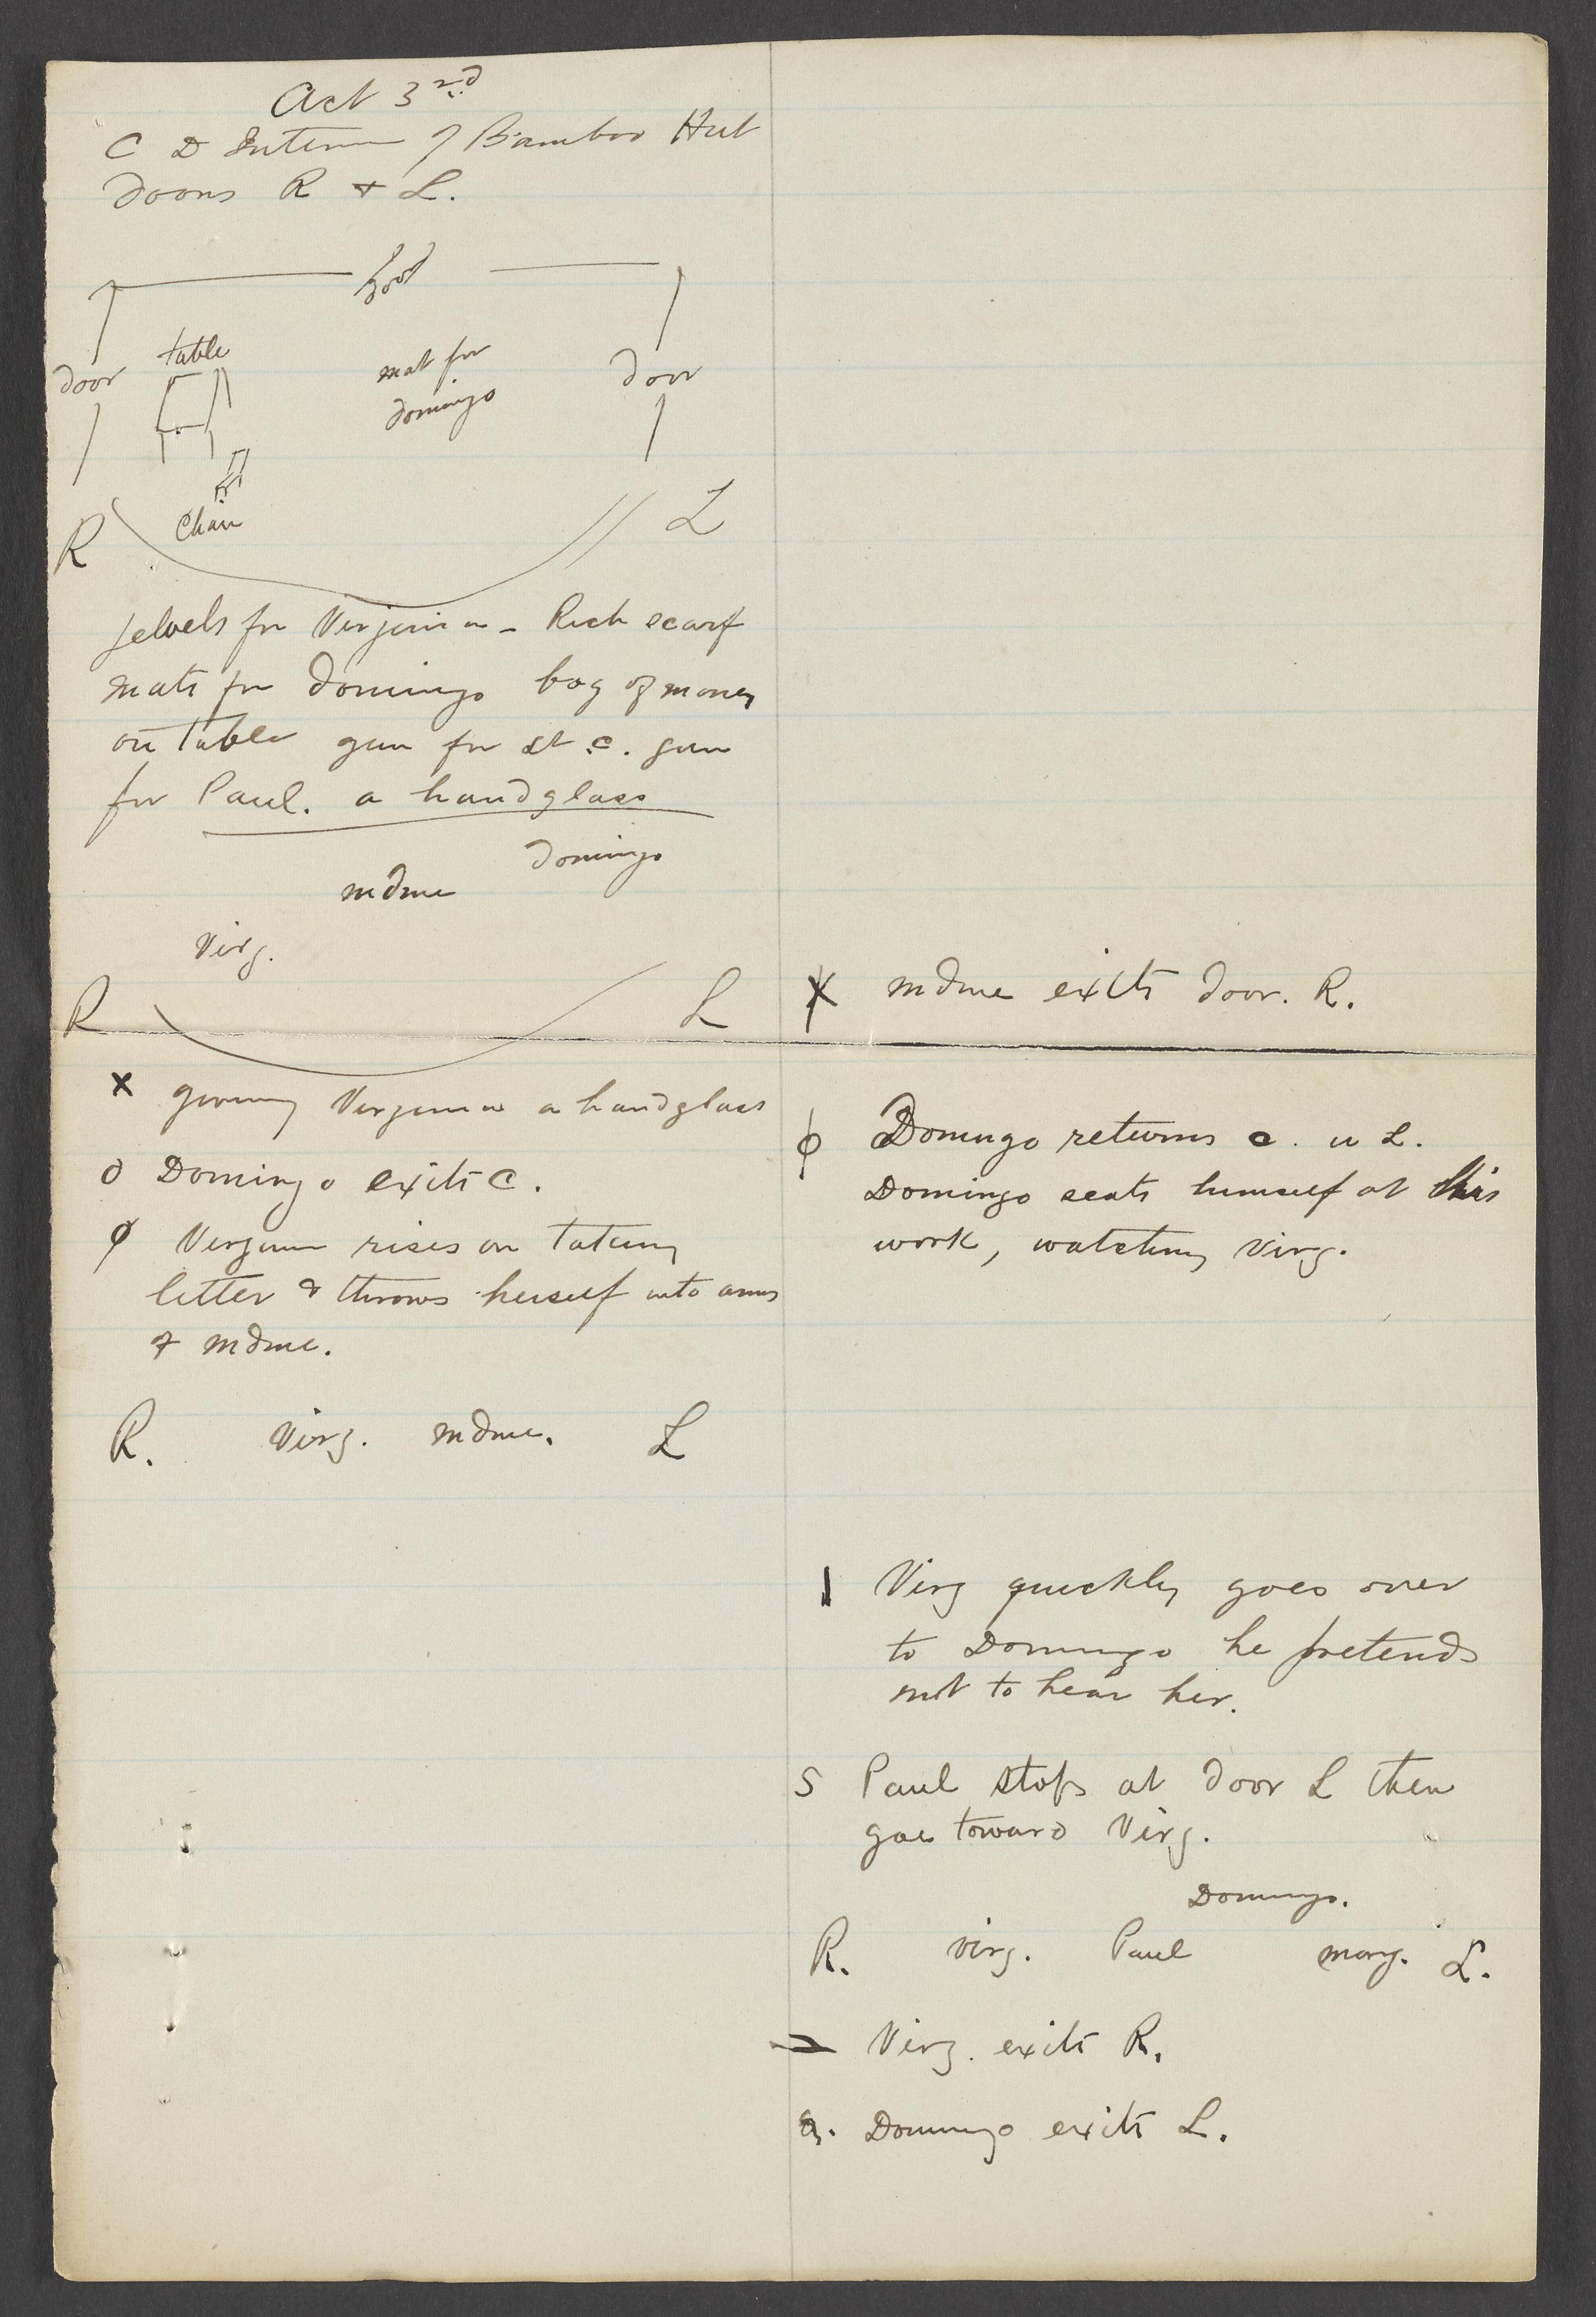 Act 3rd
C D Interior of Bamboo Hut
Doors R & L.
door
table
door
mat for
door
domingo
Chair
R L
jewels for Virginia - Rich scarf
mats for Domingo bag of money
on table gun for St. C. gun
for Paul. a handglass
Domingo
mdme
Virg.
R L
x giving Virginia a handglass
o Domingo exits C.
φ Virginia rises on taking
letter & throws herself into arms
of mdme.
R. Virg. mdme. L
X mdme exits door. R.
φ Domingo returns C. L.
Domingo seats himself at his
work, watching Virg.
1 Virg quickly goes over
to Domingo he pretends
not to hear her.
S Paul stops at door L then
goes toward Virg.
Domingo.
R. Virg. Paul L.
Virg. exits R.
Domingo exits L.